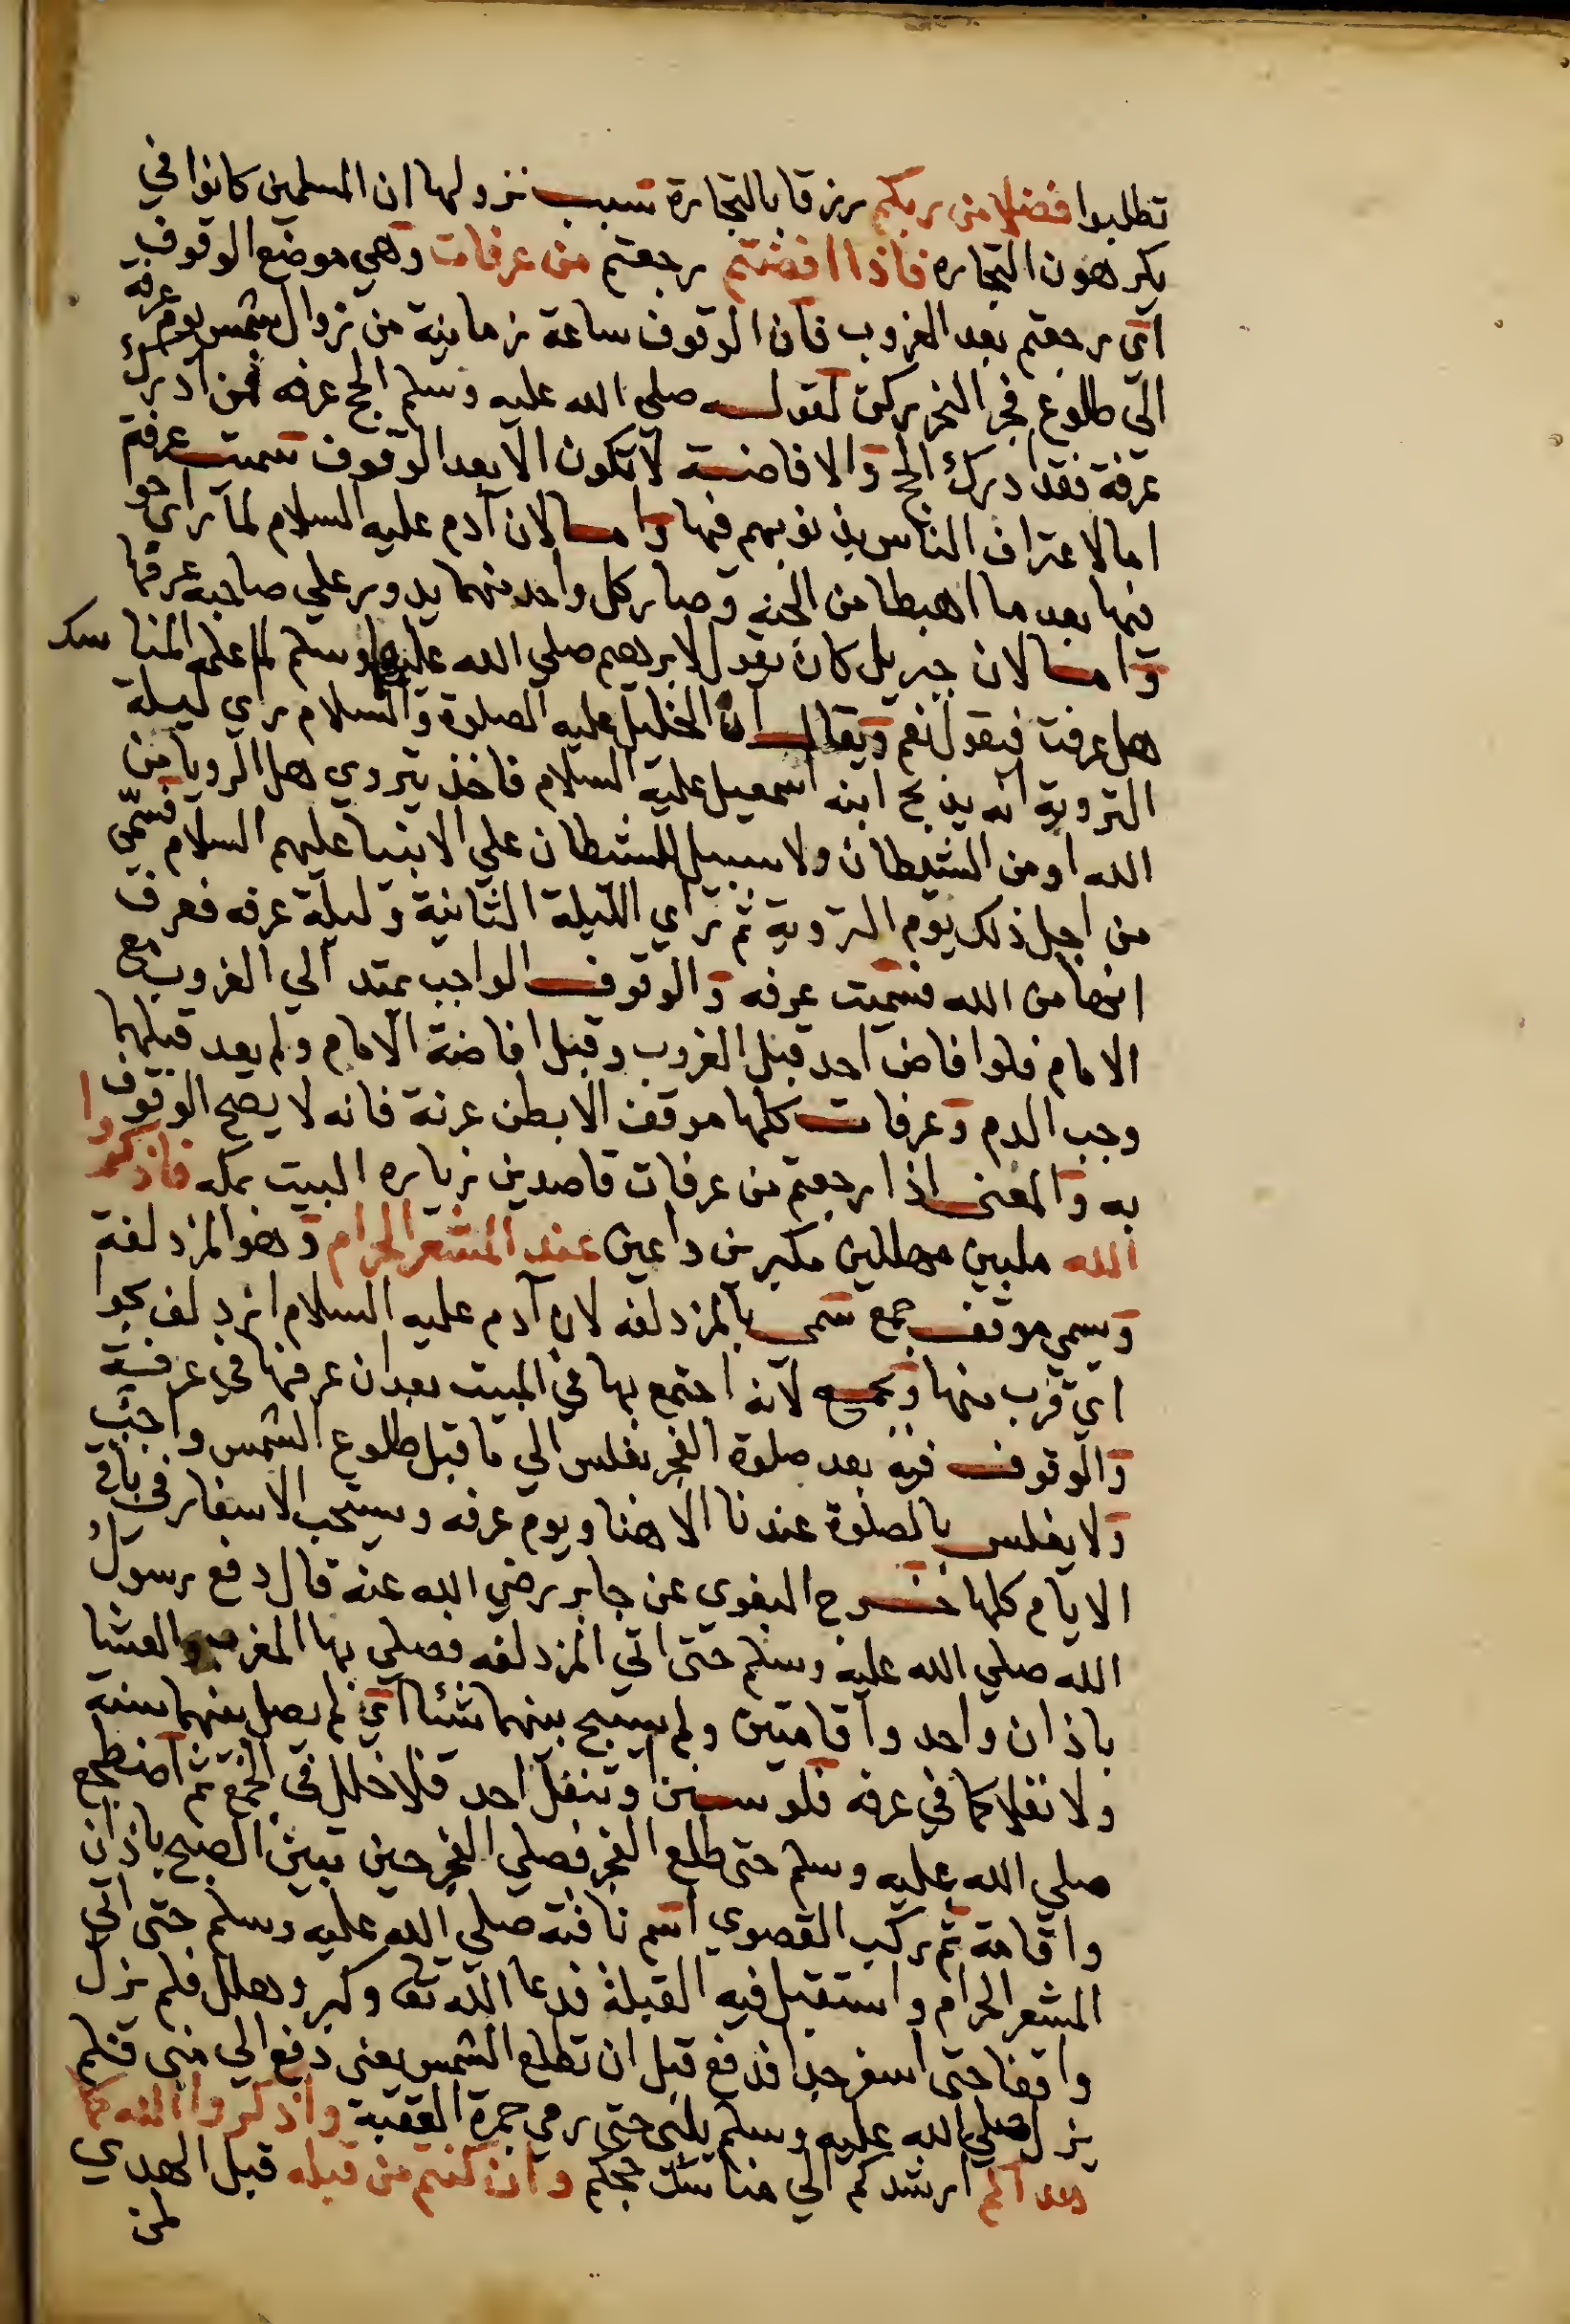 تطلبوا فضلا من ربكم رزقا بالتجارة سبب نزولها ان المسلمين كانوا في
يكرهون التجاره فاذا افضتم رجعتم من عرفات وهي موضع الوقوف
اي رجعتم بعد الغروب فان الوقوف ساعة زمانية من زوال شمس يوم عرفه
الي طلوع فجر النحر ركن لقوله صلي الله عليه وسلم الحج عرفه فمن ادرك
عرفة فقد ادرك الحج والافاضة لا تكون الا بعد الوقوف سميت عرفة
اما لاعتراف الناس بذنوبهم فيها واما لان آدم عليه السلام لما راي حوا
فيها بعد ما اهبطا من الجنه وصار كل واحد منهما يدور علي صاحبه عرفها
واما لان جبريل كان يقول لابرهيم صلي الله عليهما وسلم لما علمه المناسك
هل عرفت فيقول نعم ويقال ان الخليل عليه الصلوة والسلام راي ليلة
التروية انه يذبح ابنه اسمعيل عليه السلام فاخذ يتروي هل الرويا من
الله او من الشيطان ولا سبيل للشيطان علي الانبيا عليهم السلام فسمي
من اجل ذلك يوم التروية ثم راي الليلة الثانية وليلة عرفه فعرف
انها من الله فسميت عرفه والوقوف الواجب يمتد الي الغروب مع
الامام فلو افاض احد قبل الغروب وقبل افاضة الامام ولم يعد قبلهما
وجب الدم وعرفات كلها موقف الا بطن عرنة فانه لا يصح الوقوف
به والمعني اذا رجعتم من عرفات قاصدين زياره البيت بمكه فاذكروا
الله ملبين مهللين مكبرين داعين عند المشعر الحرام وهو المزدلفة
ويسمي موقف جمع سمى بالمزدلفه لان آدم عليه السلام ازدلف بحوا
اي قرب منها وبجمع لانه اجتمع بها في المبيت بعد ان عرفها في عرفة
والوقوف فيه بعد صلوة الفجر بغلس الي ما قبل طلوع الشمس واجب
ولا يغلس بالصلوة عندنا الا هنا ويوم عرفه ويستحب الاسفار في باقي
الايام كلها خرج البغوي عن جابر رضي الله عنه قال دفع رسول
الله صلي الله عليه وسلم حتى اتي المزدلفه فصلي بها المغرب والعشا
باذان واحد واقامتين ولم يسبح بينهما شئا اي لم يصل بينهما سنة
ولا نفلا كما في عرفه فلو سنن او تنفل احد فلا خلل في الجمع ثم اضطجع
صلي الله عليه وسلم حتى طلع الفجر فصلي الفجر حين تبين الصبح باذان
واقامة ثم ركب القصوي اسم ناقته صلي الله عليه وسلم حتى اتي
المشعر الحرام واستقبل فيه القبلة فدعا الله تع وكبر وهلل فلم يزل
واقفا حتى اسفر جدا فدفع قبل ان تطلع الشمس يعني دفع الي مني فلم
يزل صلي الله عليه وسلم يلبى حتى رمي جمرة العقبة واذكروا الله كما
هداكم ارشدكم الي مناسك حجكم وان كنتم من قبله قبل الهدي
لمن